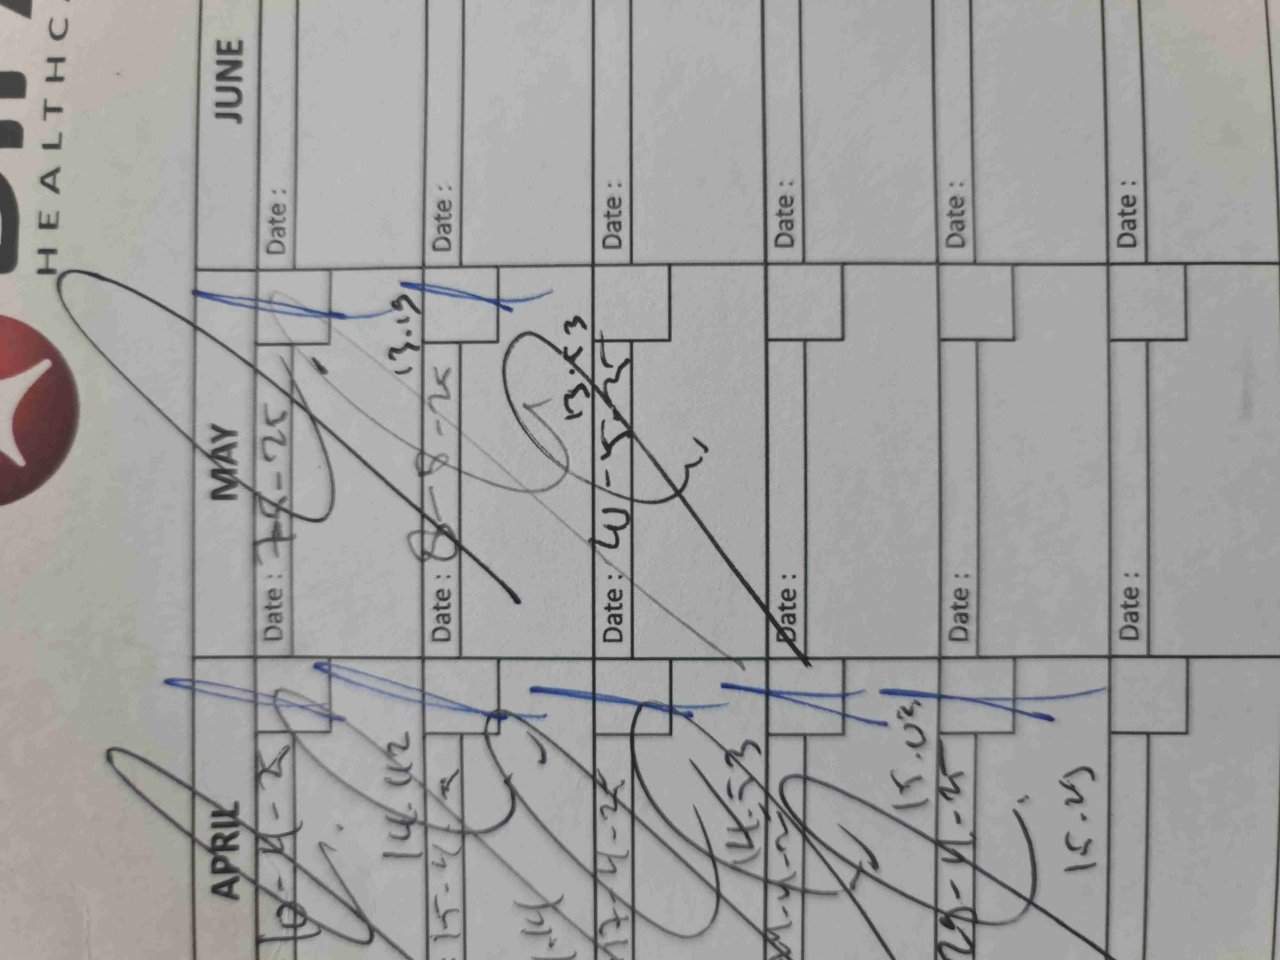 HEALTHC
APRIL
MAY
JUNE
10-4-25
Date : 7-5-25
Date :
14.42
13.19
15-4-25
Date : 8-5-25
Date :
13.53
17-4-25
Date : 14-5-25
Date :
14.53
Date :
Date :
15.03
29-4-25
Date :
Date :
15.29
Date :
Date :